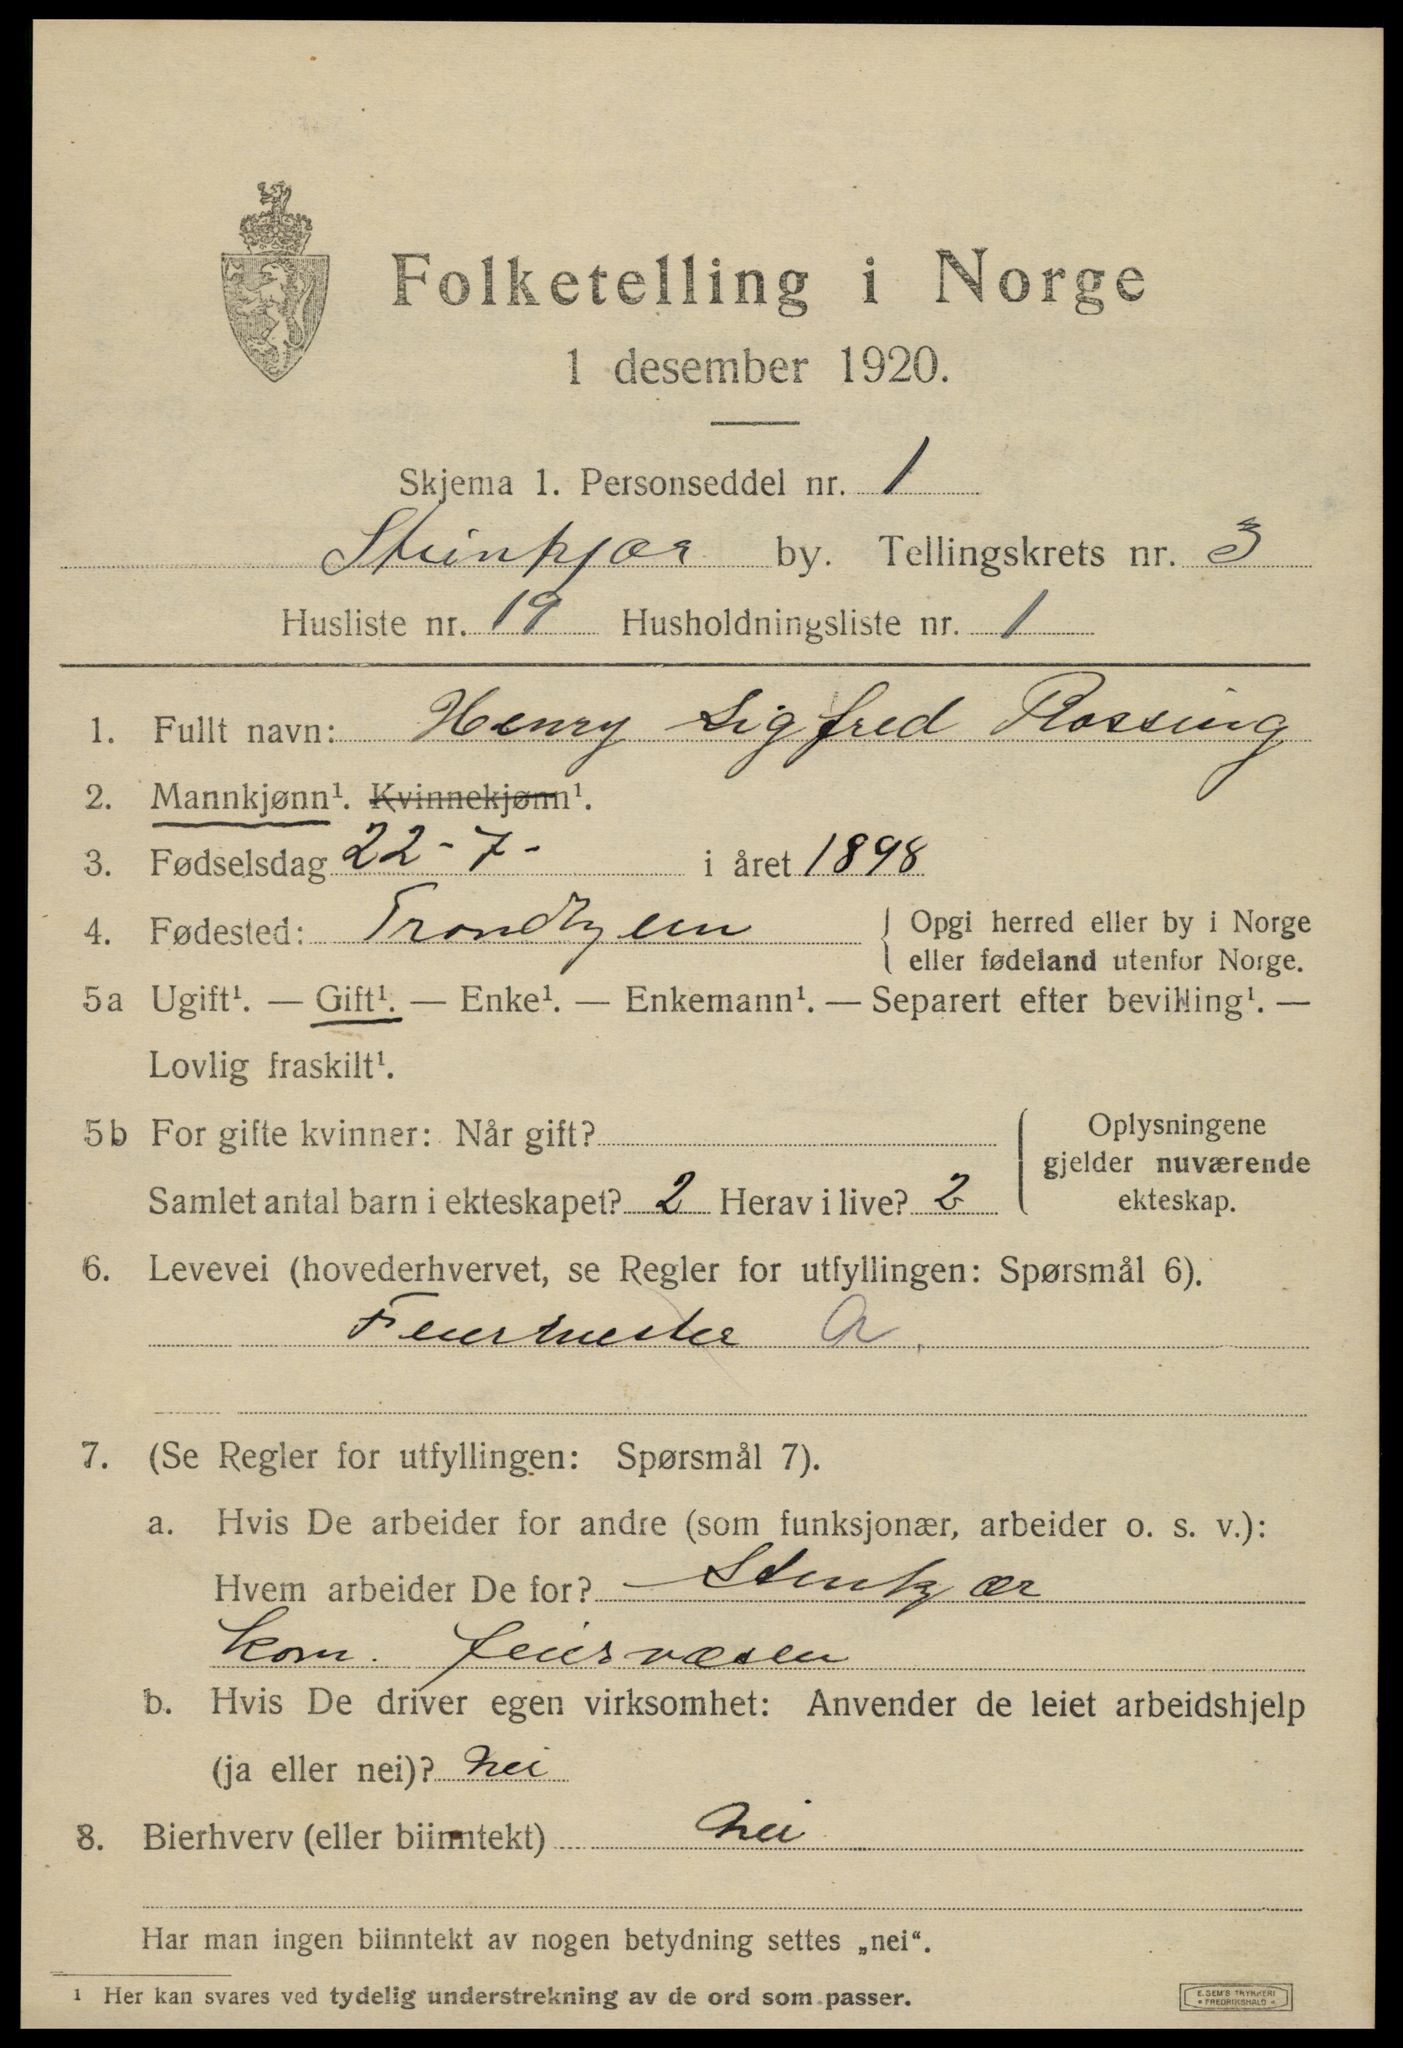 Folketelling i Norge
1 desember 1920.
Skjema 1. Personseddel nr. 1
Steinkjær by. Tellingskrets nr. 3
Husliste nr. 19 Husholdningsliste nr. 1
1. Fullt navn: Henry Sigfred Rossing
2. Mannkjønn¹. Kvinnekjønn¹.
3. Fødselsdag 22-7- i året 1898
4. Fødested: Trondhjem { Opgi herred eller by i Norge
eller fødeland utenfor Norge.
5a Ugift¹. — Gift¹. — Enke¹. — Enkemann¹. — Separert efter bevilling¹. —
Lovlig fraskilt¹.
5b For gifte kvinner: Når gift?
Samlet antal barn i ekteskapet? 2 Herav i live? 2
Oplysningene
gjelder nuværende
ekteskap.
6. Levevei (hovederhvervet, se Regler for utfyllingen: Spørsmål 6).
Feiermester A.
7. (Se Regler for utfyllingen: Spørsmål 7).
a. Hvis De arbeider for andre (som funksjonær, arbeider o. s. v.):
Hvem arbeider De for? Stenkjær
kom. feiervæsen
b. Hvis De driver egen virksomhet: Anvender de leiet arbeidshjelp
(ja eller nei)? nei
8. Bierhverv (eller biinntekt) nei
Har man ingen biinntekt av nogen betydning settes „nei“.
¹ Her kan svares ved tydelig understrekning av de ord som passer.
E. SEM'S TRYKKERI
* FREDRIKSHALD *